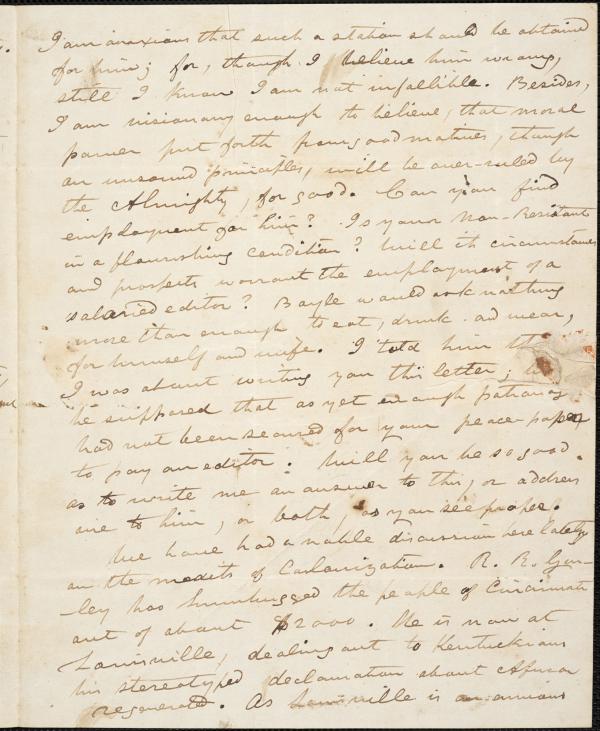 I am anxious that such a station should be obtained
for him; for, though I believe him wrong,
still I know I am not infallible. Besides,
I am visionary enough to believe, that moral
power put forth from good motives, though
on unsound principles, will be over-ruled by
the Almighty, for good. Can you find
employment for him? Is your Non-Resistant
in a flourishing condition? Will its circumstances
and prospects warrant the employment of a
salaried editor? Bayle would ask nothing
more than enough to eat, drink and wear,
for himself and wife. I told him
I was about writing you this letter;
he supposed that as yet enough patronage
had not been secured for your peace paper
to pay an editor. Will you be so good
as to write me an answer to this, or address
one to him, or both, as you see proper.
We have had a noble discussion here lately
on the merits of Colonization. R. R. Gur-
-ley has humbugged the people of Cincinnati
out of about $2000. He is now at
Louisville, dealing out to Kentuckians
his stereotyped declamation about Africa
regenerated. As Louisville is an